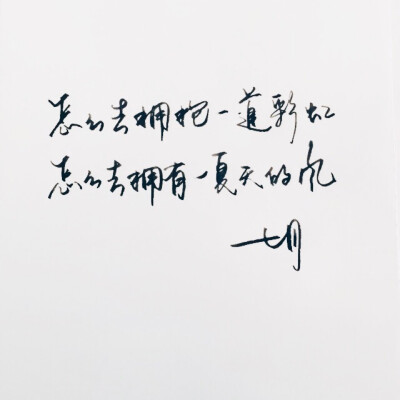 怎么去拥抱一道彩虹
怎么去拥有一夏天的风
七月